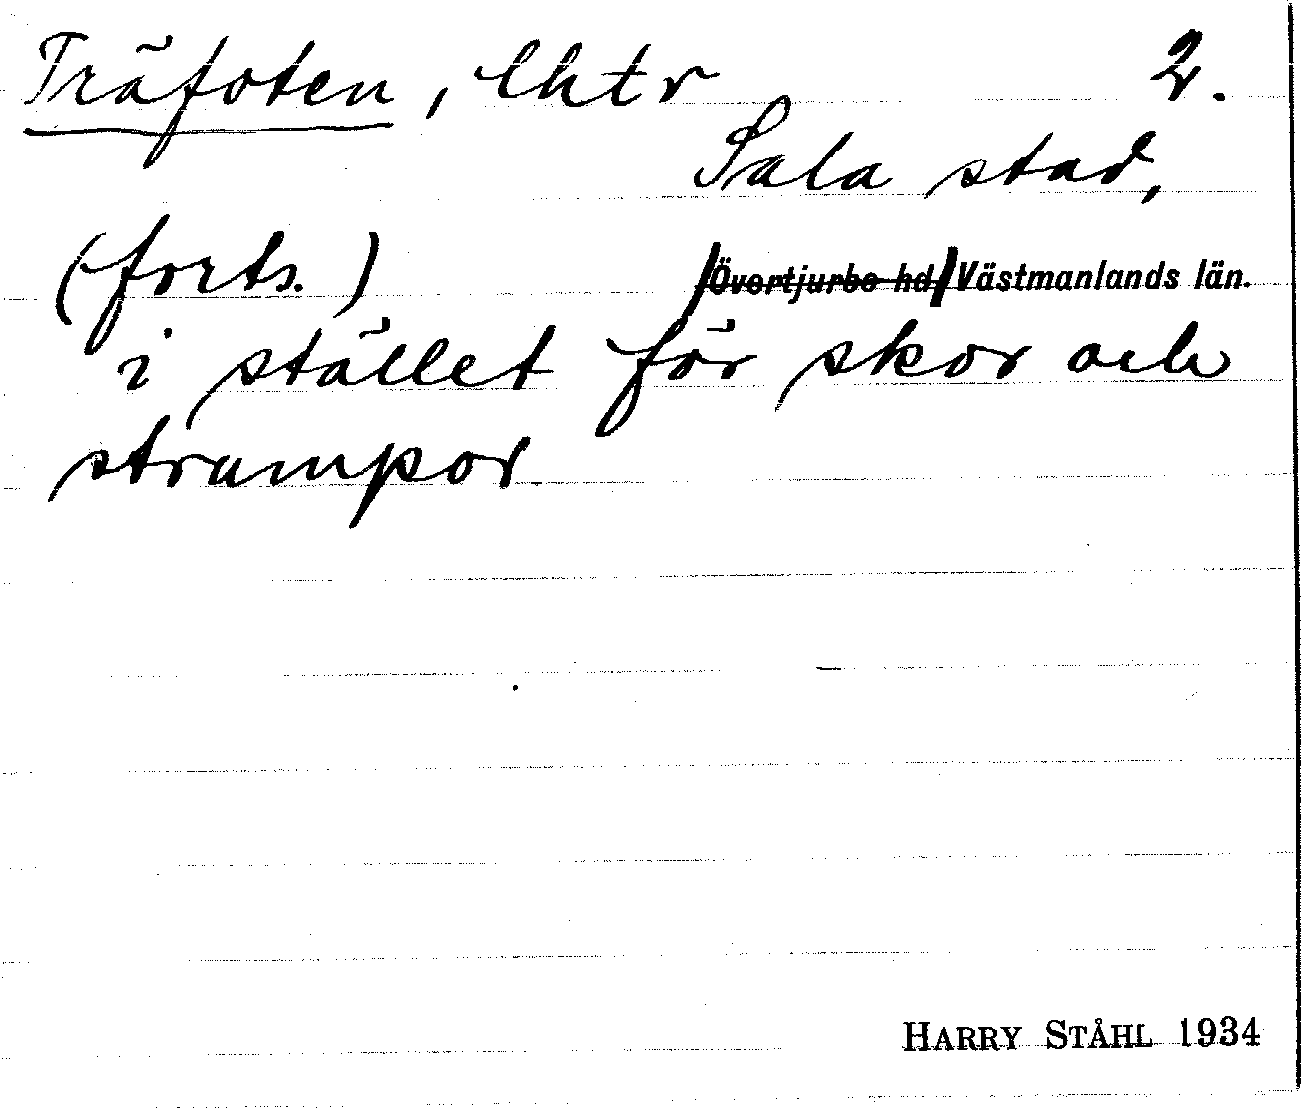 Träfoten, lhtr 2.
Sala stad,
(forts.) /Övertjurbo hd/ Västmanlands län.
i stället för skor och
strumpor
HARRY STÅHL 1934